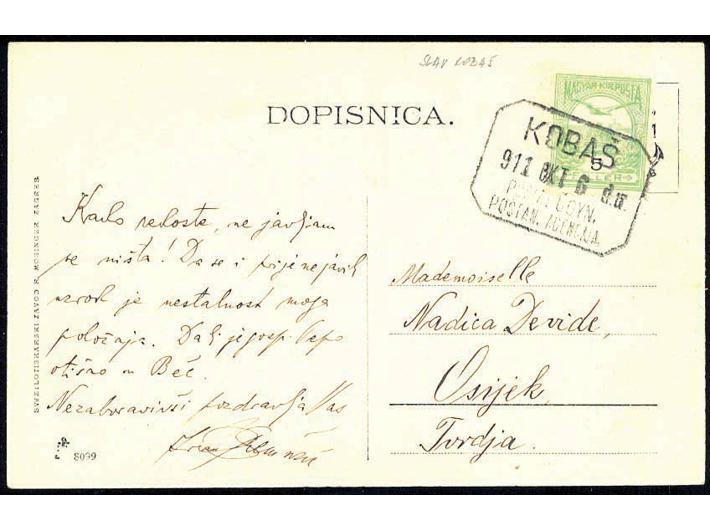 SLAV KOBAŠ
DOPISNICA.
MAGYAR KIR. POSTA
5
KOBAŠ
911 OKT 6 d.u.
POŠTAN. AGENCIJA
Kako redoste, ne javljam
se ništa! Da se i prije ne javih
uzrok je nestalnost moga
položaja. Da li je gosp. Pepo
otišao u Beč.
Nezaboravivši pozdravlja Vas
Mademoiselle
Nadica Devide,
Osijek
Tvrdja.
SVJETLOTISKARSKI ZAVOD R. MOSINGER, ZAGREB
8099